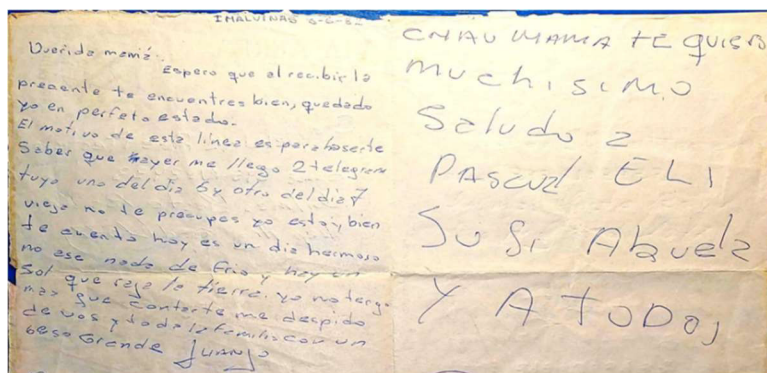 I MALVINAS
Querida mamá.
espero que al recibir la
presente te encuentres bien, quedado
yo en perfeto estado.
El motivo de esta línea es para haserte
Saber que hayer me llego 2 telegrama
tuyo uno del dia 6 y otro del dia 7
vieja no te preocupes yo estoy bien
te cuento hoy es un dia hermoso
no ese nada de frio y hay un
Sol que raja la tierra, yo no tengo
mas que contarte me despido
de vos y toda la familia con un
beso Grande JUANJO
CHAU MAMA TE QUIERO
MUCHISIMO
Saludo a
PASCUAL ELI
SUSI Abuela
Y A TODOS